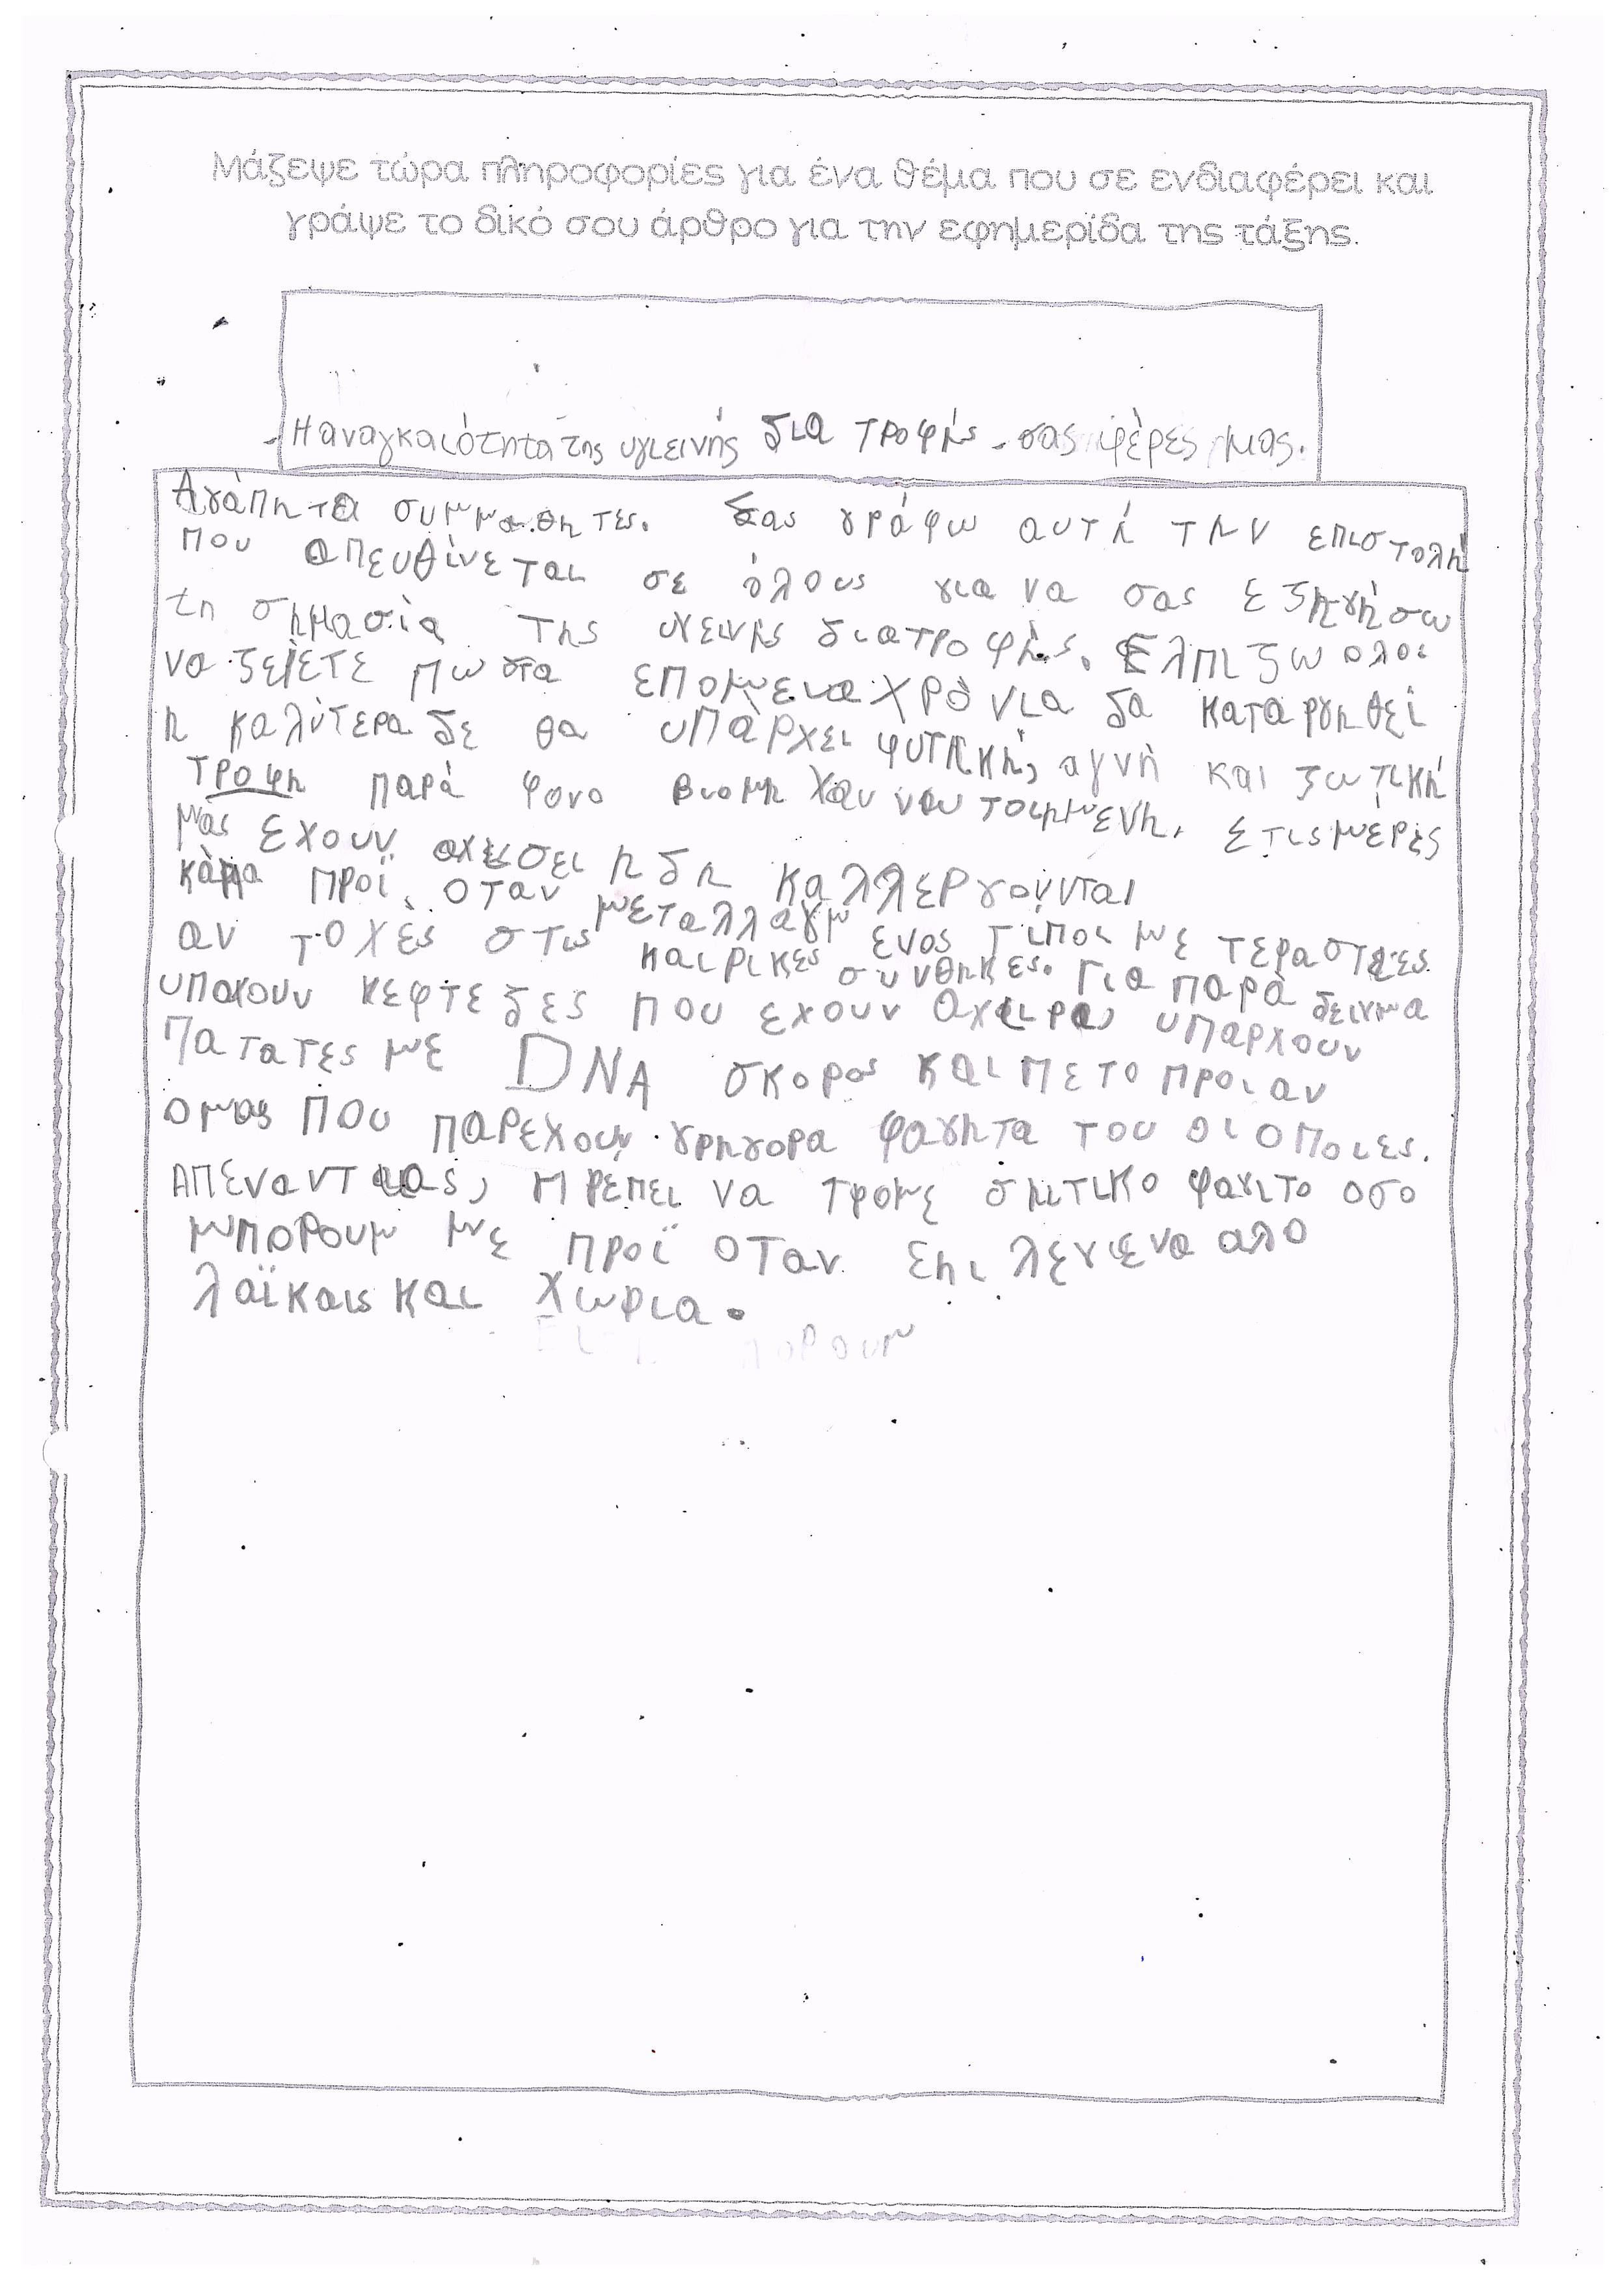 Μάζεψε τώρα πληροφορίες για ένα θέμα που σε ενδιαφέρει και
γράψε το δικό σου άρθρο για την εφημερίδα της τάξης.
Η αναγκαιότητα της υγιεινής δια τροφής - σας μέρες μας.
Αγάπητα συμμαθητες. Σας γράφω αυτή την επιστολή
που απευθίνεται σε όλους για να σας εξηγήσω
τη σημασία της υγεινής διατροφής. Ελπιζω ολοι
να ξερετε πω στα επομενα χρόνια δα καταργηθεί
η καλύτερα δε θα υπάρχει φυτηκή, αγνή και ζωτική
τροφη παρά φονο βιομη χαν νου τοιημενη. Στις μέρες
μας εχουν αχισει ηδη καλλεργούνται
κάπα προϊ οταν μεταλλαγμ ενος τίποι με τεραστιες
αν τοχές στις καιρικες συνθηκες. Για παρά δειγμα
υπαχουν κεφτεδες που εχουν αχειρα, υπαρχουν
πατατες με DNA σκορος και πετο προιαν
ομος που παρεχουν γρηγορα φαγητα του θιοποιες.
Απεναντιας, πρέπει να τρομε σπιτικο φαγιτο οσο
μπορουμ με προϊ οταν επι λεγμενα απο
λαϊκαις και χωρια.